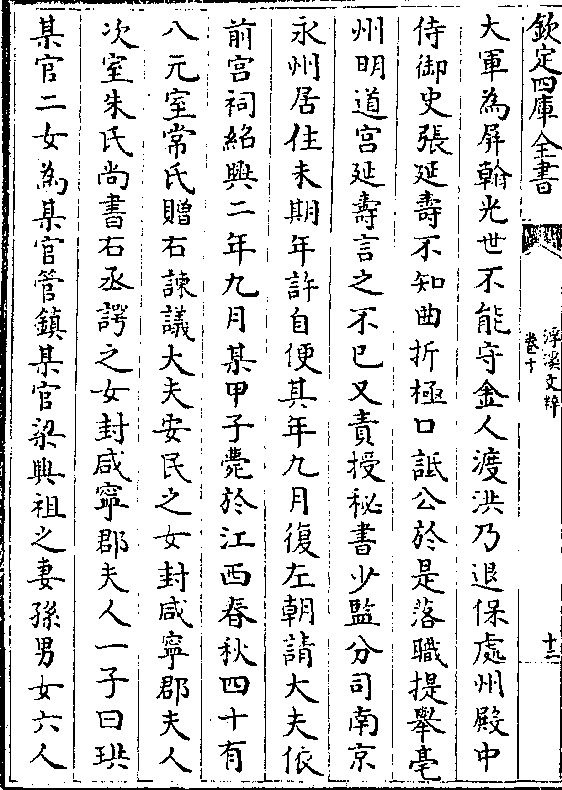 欽定四庫全書
浮溪文粹
卷十
十三
大軍為屏翰光世不能守金人渡洪乃退保處州殿中
侍御史張延壽不知曲折極口詆公於是落職提舉亳
州明道宫延壽言之不已又責授秘書少監分司南京
永州居住未期年許自便其年九月復左朝請大夫依
前宫祠紹興二年九月某甲子薨於江西春秋四十有
八元室常氏贈右諫議大夫安民之女封咸寧郡夫人
次室朱氏尚書右丞諤之女封咸寧郡夫人一子曰珙
某官二女為某官管鎮某官梁興祖之妻孫男女六人